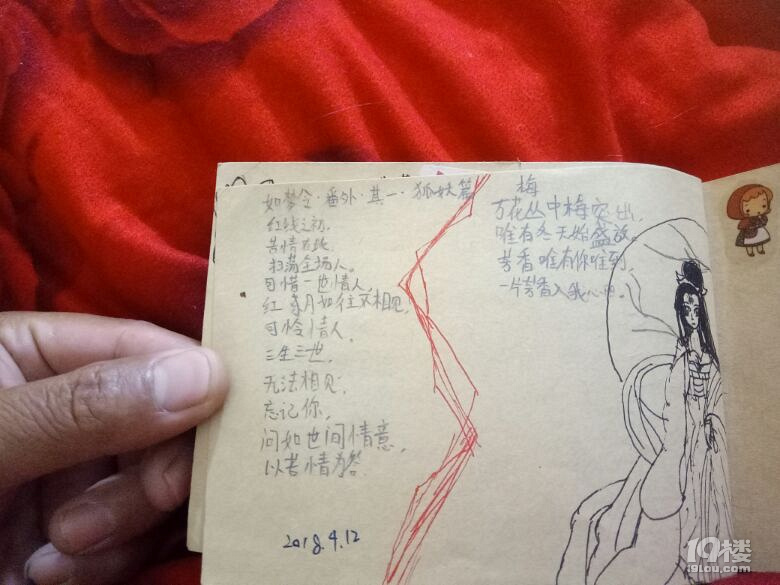 如梦令·番外·其一·狐妖篇
红线之初,
苦情
扫荡全场人。
可惜一世情人,
红 月如往又相见,
可怜情人。
三生三世,
无法相见,
忘记你,
问如世间情意,
以苦情为答.
2018.4.12
梅
万花丛中梅突出,
唯有冬天始盛放。
芳香唯有你唯到,
一片芳香入我心中。
19楼
19lou.com